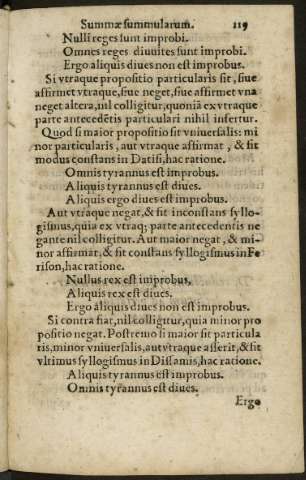 Summæ summularum. 119
Nulli reges sunt improbi.
Omnes reges diuuites sunt improbi.
Ergo aliquis diues non est improbus.
Si vtraque propositio particularis sit, siue
affirmet vtraque, siue neget, siue affirmet vna
neget altera, nil colligitur, quoniã ex vtraque
parte antecedẽtis particulari nihil infertur.
Quod si maior propositio sit vniuersalis: mi
nor particularis, aut vtraque affirmat, & sit
modus constans in Datisi, hac ratione.
Omnis tyrannus est improbus.
Aliquis tyrannus est diues.
Aliquis ergo diues est improbus.
Aut vtraque negat, & sit inconstans syllo-
gismus, quia ex vtraq; parte antecedentis ne
gante nil colligitur. Aut maior negat, & mi-
nor affirmat, & sit constans syllogismus in Fe
rison, hac ratione.
Nullus rex est improbus,
Aliquis rex est diues.
Ergo aliquis diues non est improbus.
Si contra fiat, nil colligitur, quia minor pro
positio negat. Postremo li maior sit particula
ris, minor vniuersalis, aut vtraque asserit, & sit
vltimus syllogismus in Disamis, hac ratione.
Aliquis tyrannus est improbus.
Omnis tyrannus est diues.
Ergo